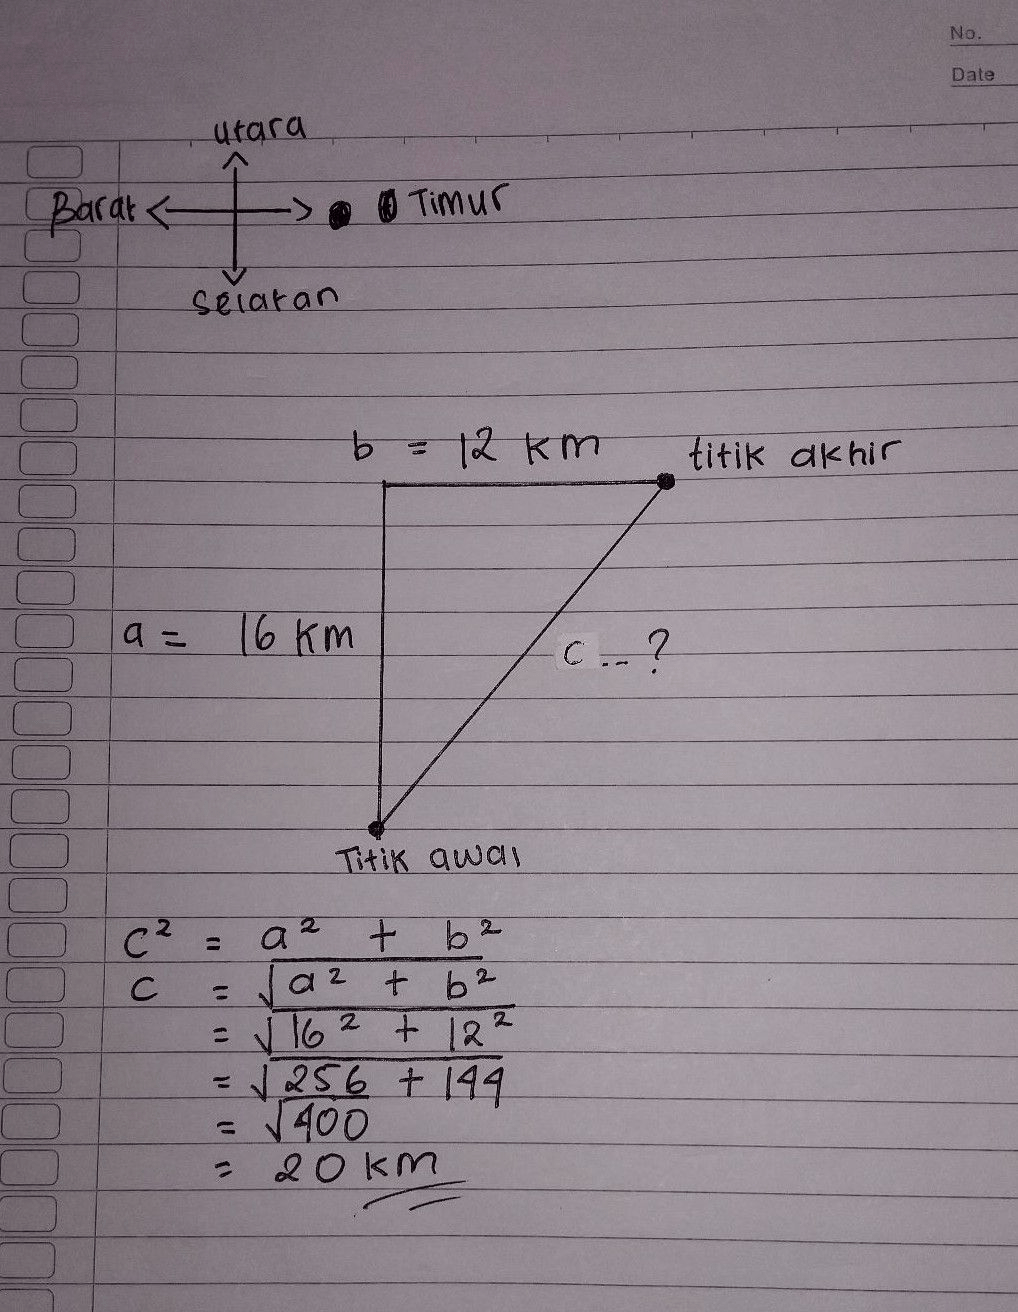 No.
Date
utara
Barat Timur
Selatan
b = 12 km titik akhir
a = 16 Km
c...?
Titik awal
c² = a² + b²
c = √a² + b²
= √16² + 12²
= √256 + 144
= √400
= 20 km